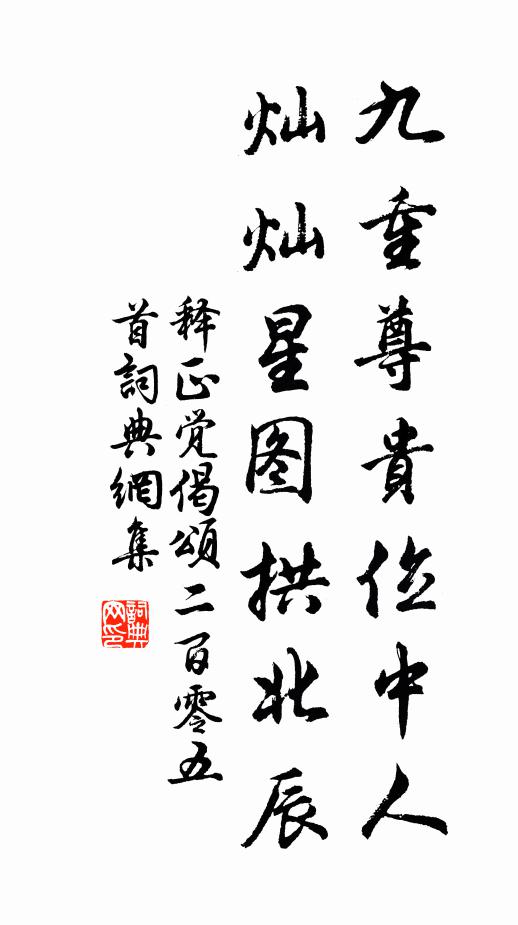 九重尊貴位中人
灿灿星图拱北辰
释正觉偈頌二百零五
首詞典網集
詞典网印